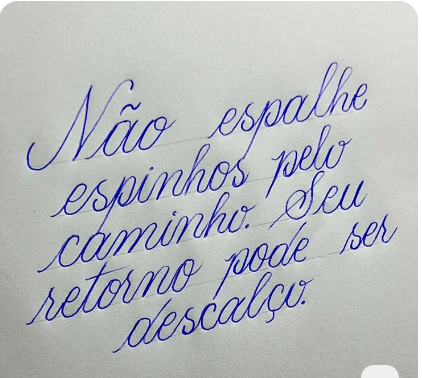 Não espalhe
espinhos pelo
caminho. Seu
retorno pode ser
descalço.